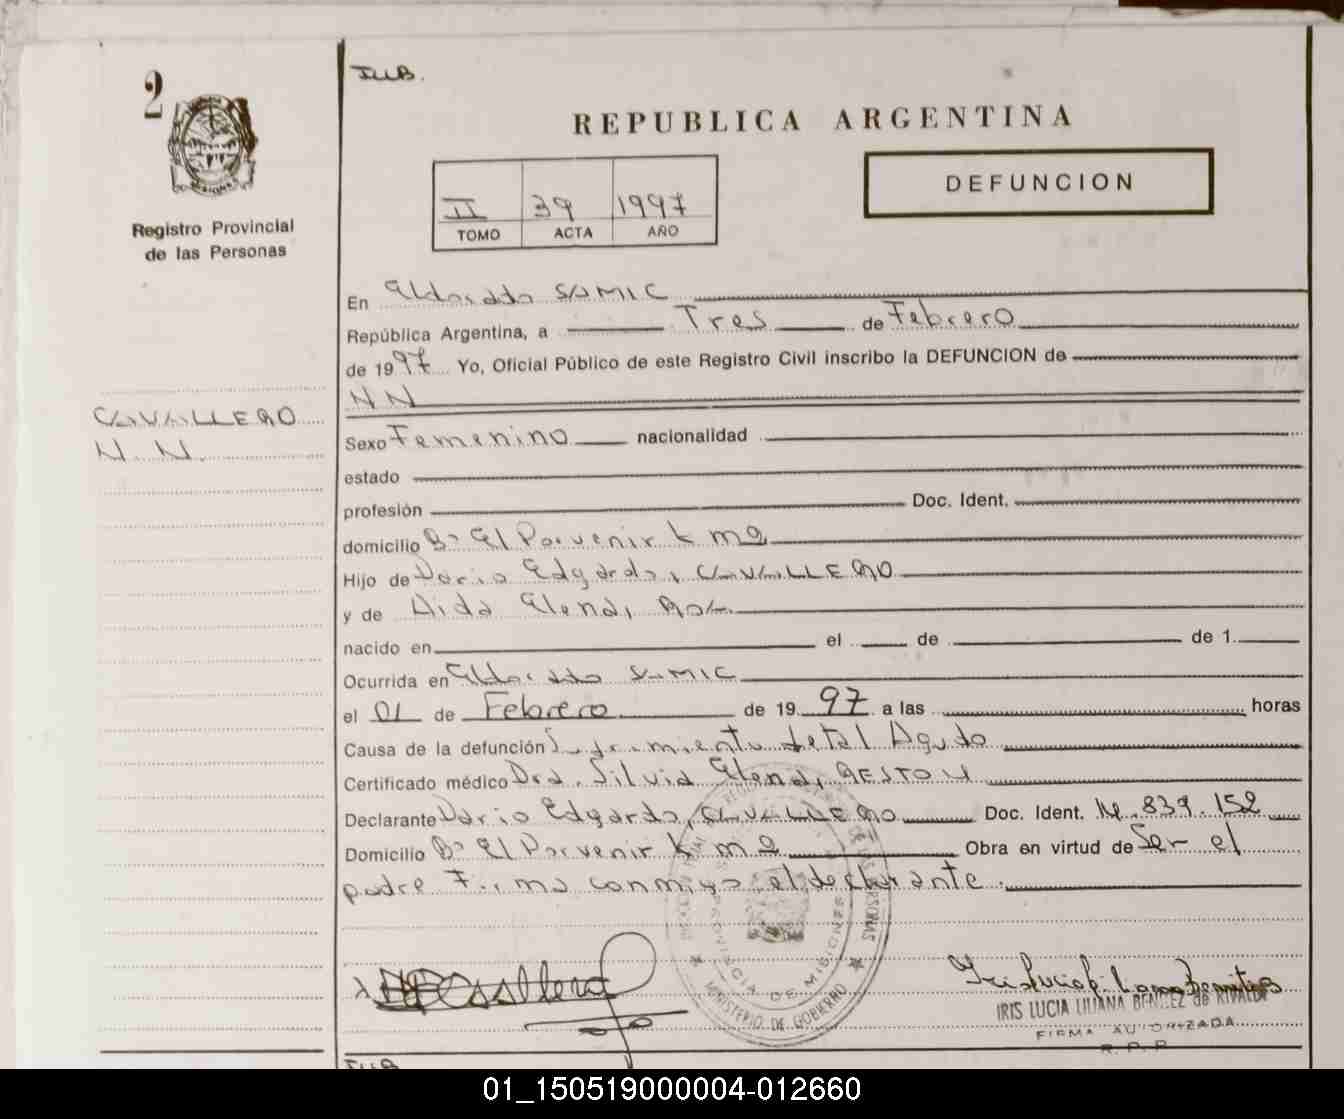 2
Registro Provincial
de las Personas
CAVALLERO
N. N.
REPUBLICA ARGENTINA
DEFUNCION
II 39 1997
TOMO ACTA AÑO
En Eldorado SAMIC
República Argentina, a Tres de Febrero
de 1997 Yo, Oficial Público de este Registro Civil inscribo la DEFUNCION de
NN
Sexo Femenino nacionalidad
estado
profesión Doc. Ident.
domicilio Bº El Porvenir Km 2
Hijo de Dario Edgardo, CAVALLERO
y de Aida Elena,
nacido en el de de 1
Ocurrida en Eldorado SAMIC
el 01 de Febrero de 1997 a las horas
Causa de la defunción Sufrimiento fetal Agudo
Certificado médico Dra. Silvia Elena, GESTOU
Declarante Dario Edgardo, CAVALLERO Doc. Ident. 839.152
Domicilio Bº El Porvenir Km 2 Obra en virtud de Ser el
padre Firma conmigo el declarante.
PROVINCIA DE MISIONES
MINISTERIO DE GOBIERNO
IRIS LUCIA LILIANA BENITEZ de RIVALDI
FIRMA AUTORIZADA
R.P.P
01_150519000004-012660